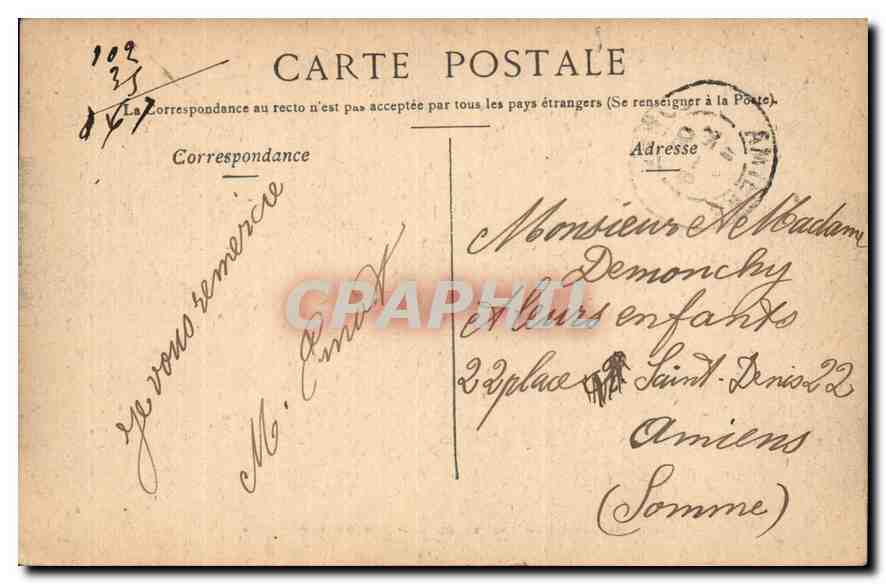 102
35
167
CARTE POSTALE
La Correspondance au recto n'est pas acceptée par tous les pays étrangers (Se renseigner à la Poste).
Correspondance
Adresse
AMIENS
je vous remercie
M.
Monsieur et Madame
Demonchy
et leurs enfants
22 place Saint-Denis 22
Amiens
(Somme)
CPAPHIL